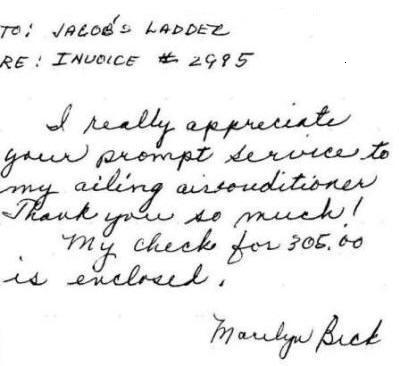 TO: JACOB'S LADDER
RE: INVOICE # 2995
I really appreciate
your prompt service to
my ailing airconditioner
Thank you so much!
My check for 305.00
is enclosed.
Marilyn Beck